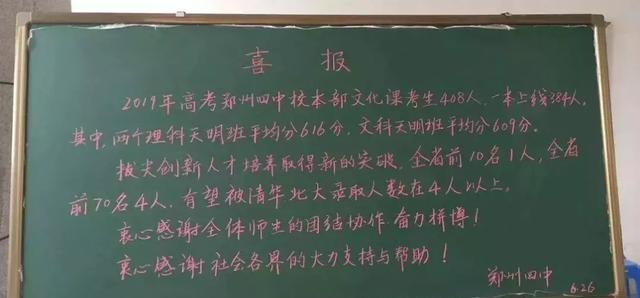 喜报
2019年高考郑州四中校本部文化课考生408人，一本上线384人，
其中，两个理科天明班平均分616分，文科天明班平均分609分。
拔尖创新人才培养取得新的突破，全省前10名1人，全省
前70名4人，有望被清华北大录取人数在4人以上。
衷心感谢全体师生的团结协作 奋力拼搏！
衷心感谢社会各界的大力支持与帮助！
郑州四中
6.26